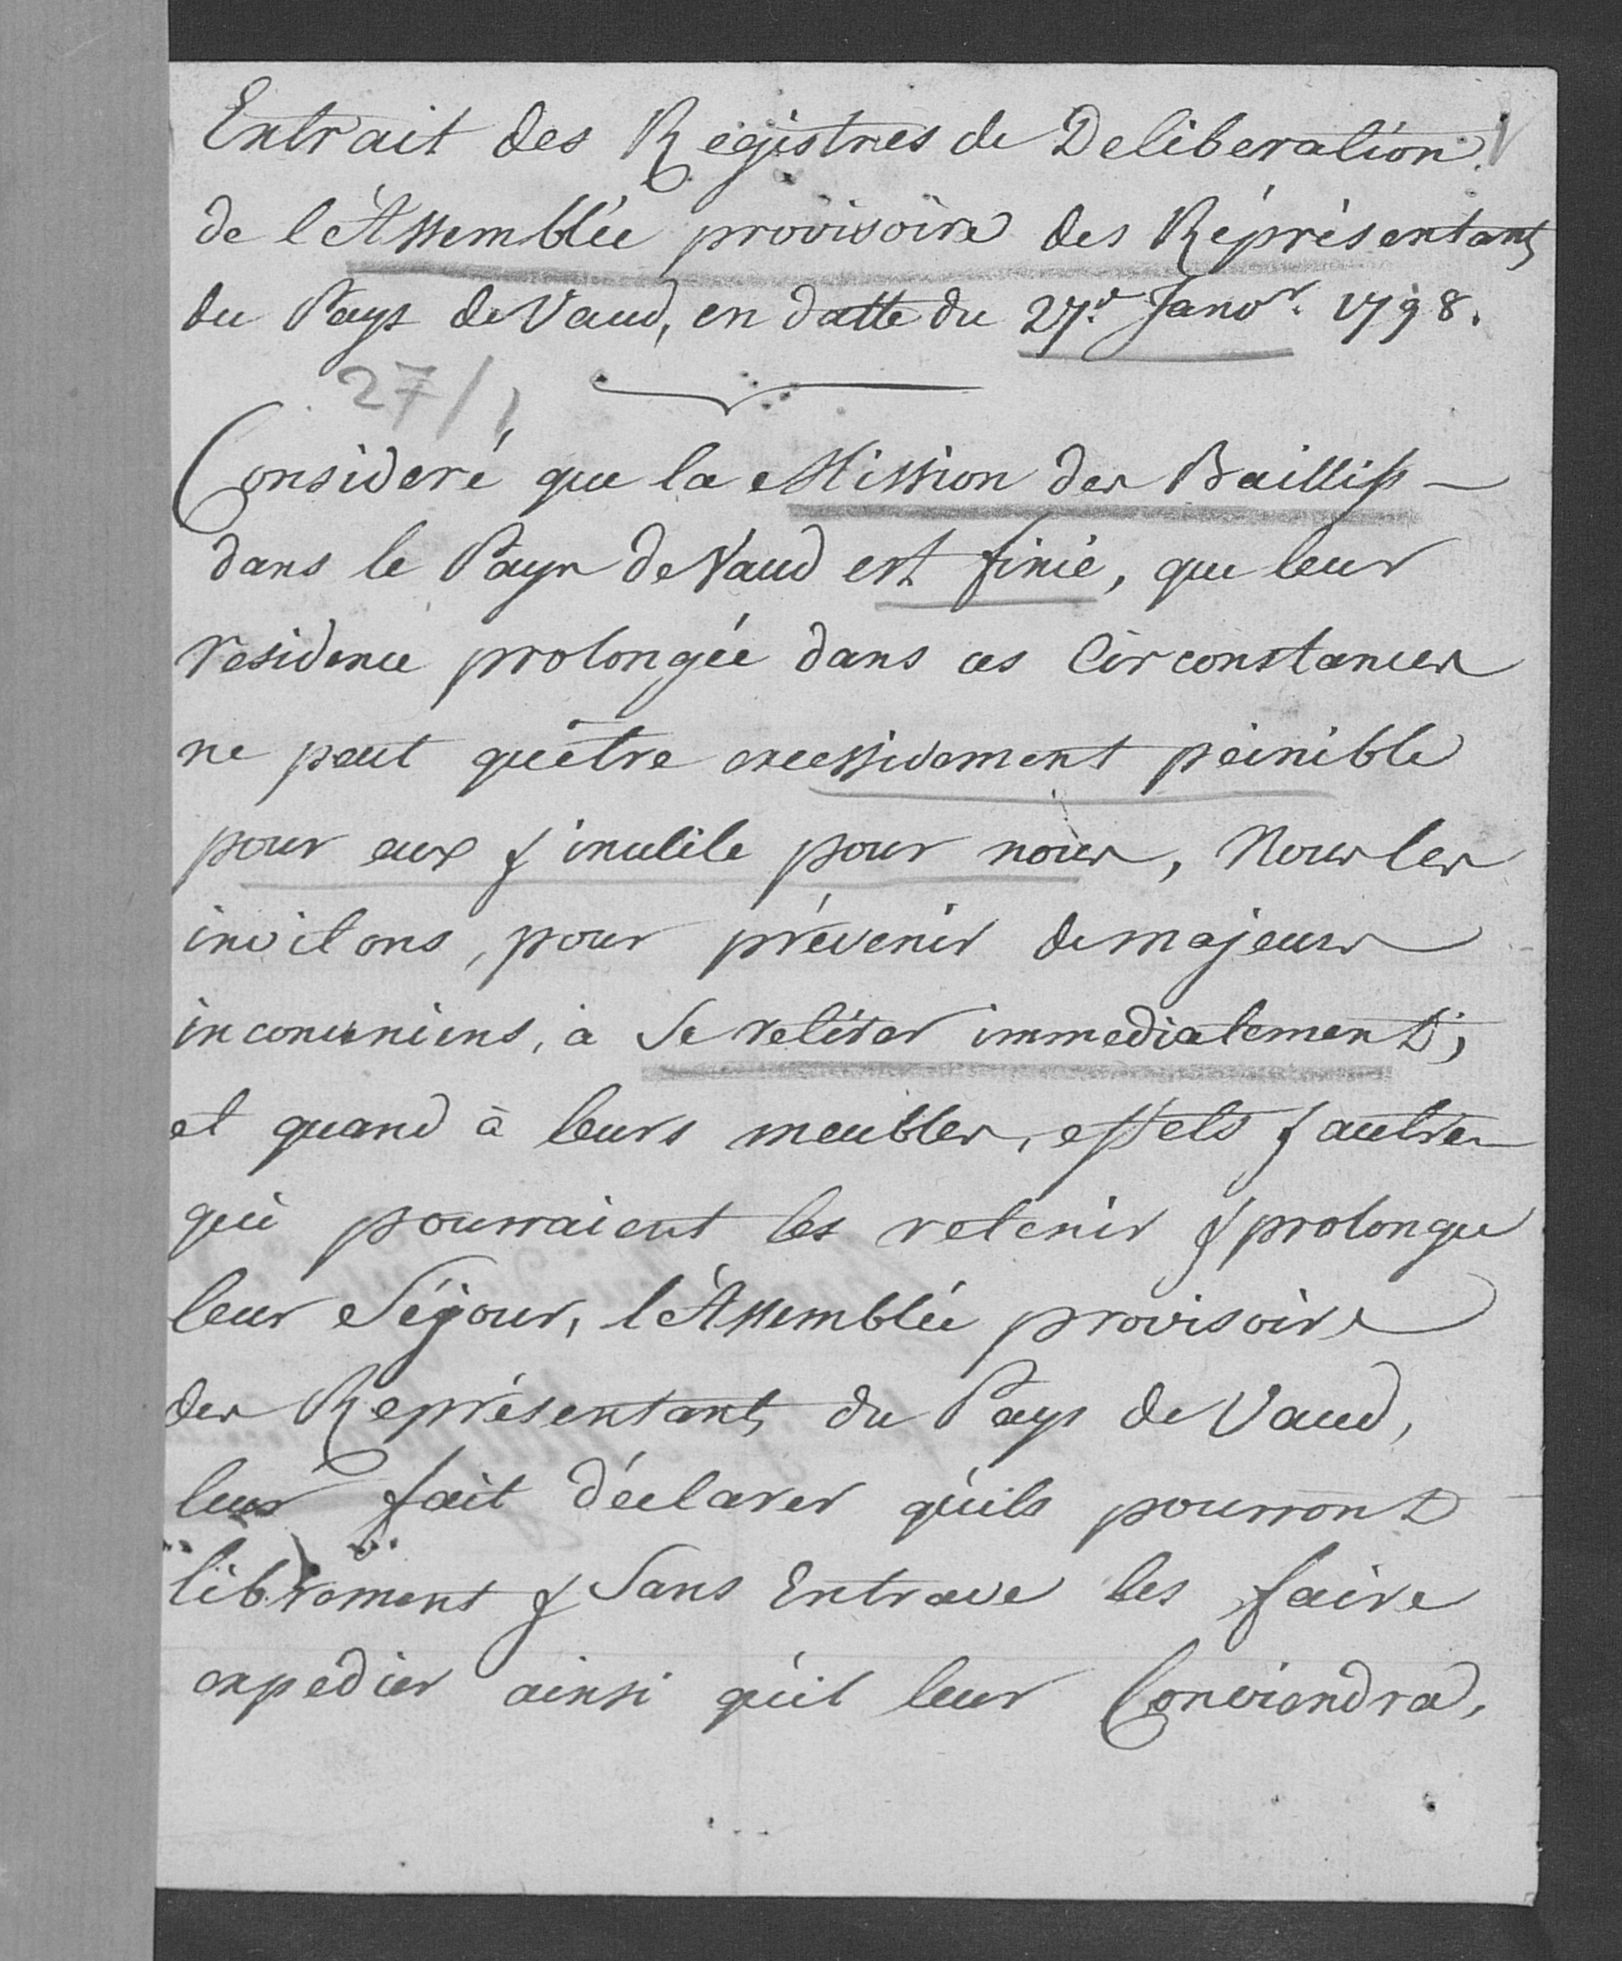 Extrait des Régistres de Deliberation
de l'Assemblée provisoire des Réprésentants
du Pays de Vaud, en datte du 27.e Janvr. 1798.
27/1
Consideré que la Mission des Baillifs
dans le Pays de Vaud est finie, que leur
residence prolongée dans ces Circonstances
ne peut qu'etre excessivement peinible
pour eux & inutile pour nous, Nous les
invitons, pour prévenir de majeurs
inconveniens, à Se retirer immediatement;
et quand à leurs meubles, effets & autres
qui pourraient les retenir & prolonger
leur Séjour, l'Assemblée provisoire
des Représentants du Pays de Vaud,
leur fait déclarer qu'ils pourront
librement & Sans Entrave les faire
expédier ainsi qu'il leur Conviendra,